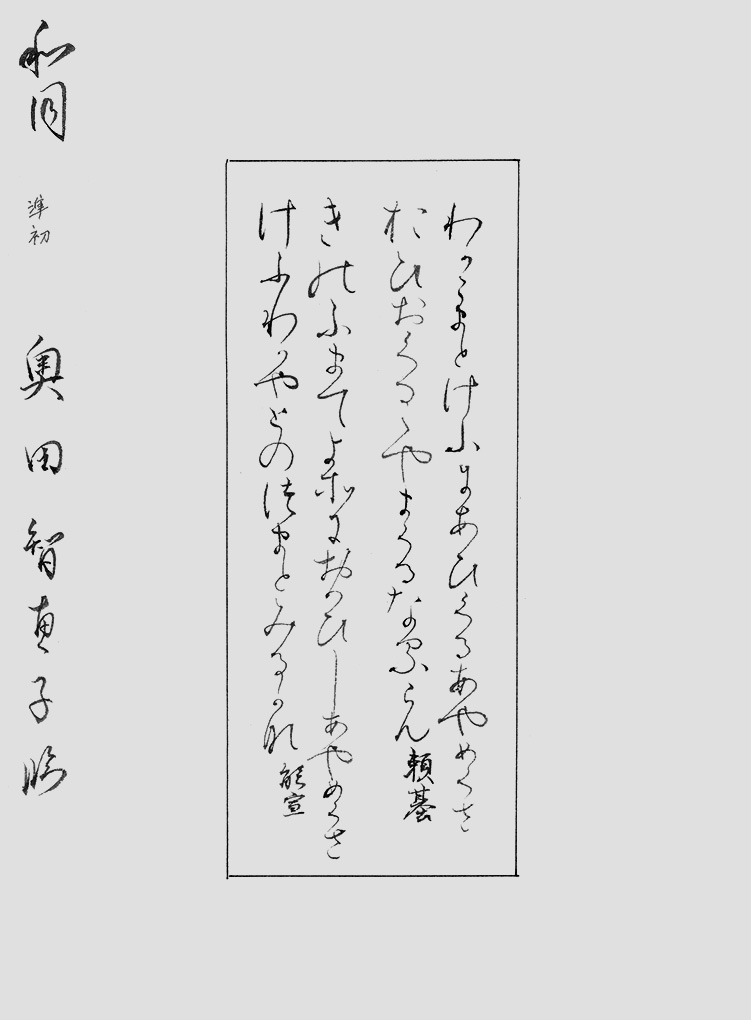 わかこまとけふにあひくるあやめくさ
おひおくるゝやまくるなるらん 頼基
きのふまてよそにおもひしあやめくさ
けふわかやとのつまとみるかな 能宣
和同 準初 奥田智恵子臨